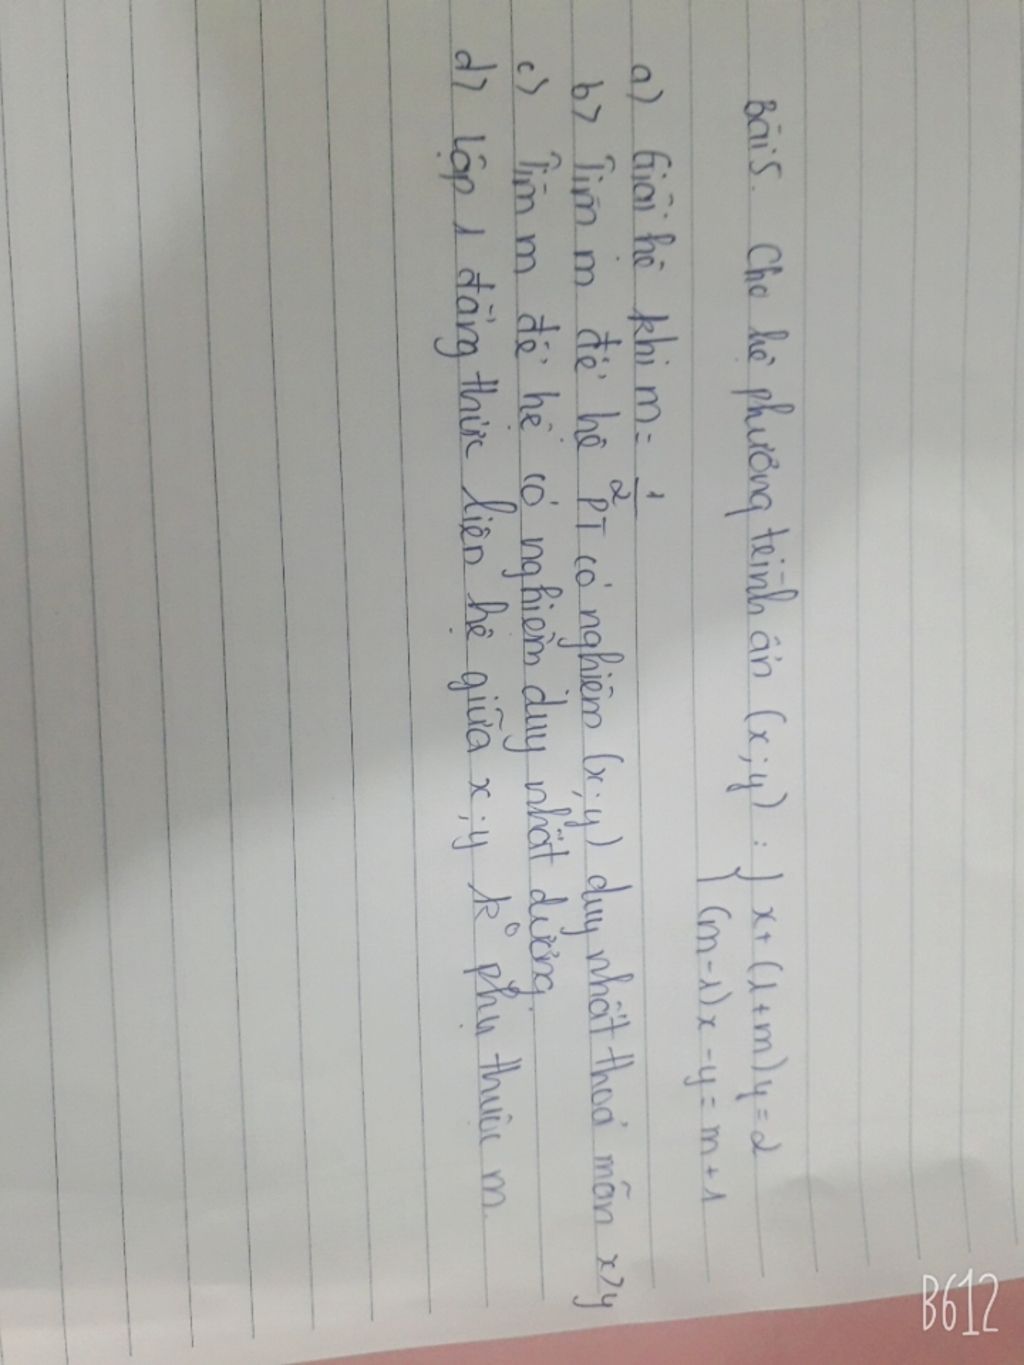 Bài 5. Cho hệ phương trình ẩn (x; y) : { x + (1+m)y = 2
(m-1)x - y = m + 1
a) Giải hệ khi m = 1/2
b) Tìm m để hệ PT có nghiệm (x; y) duy nhất thoả mãn x > y
c) Tìm m để hệ có nghiệm duy nhất dương.
d) Lập 1 đẳng thức liên hệ giữa x; y k° phụ thuộc m.
B612